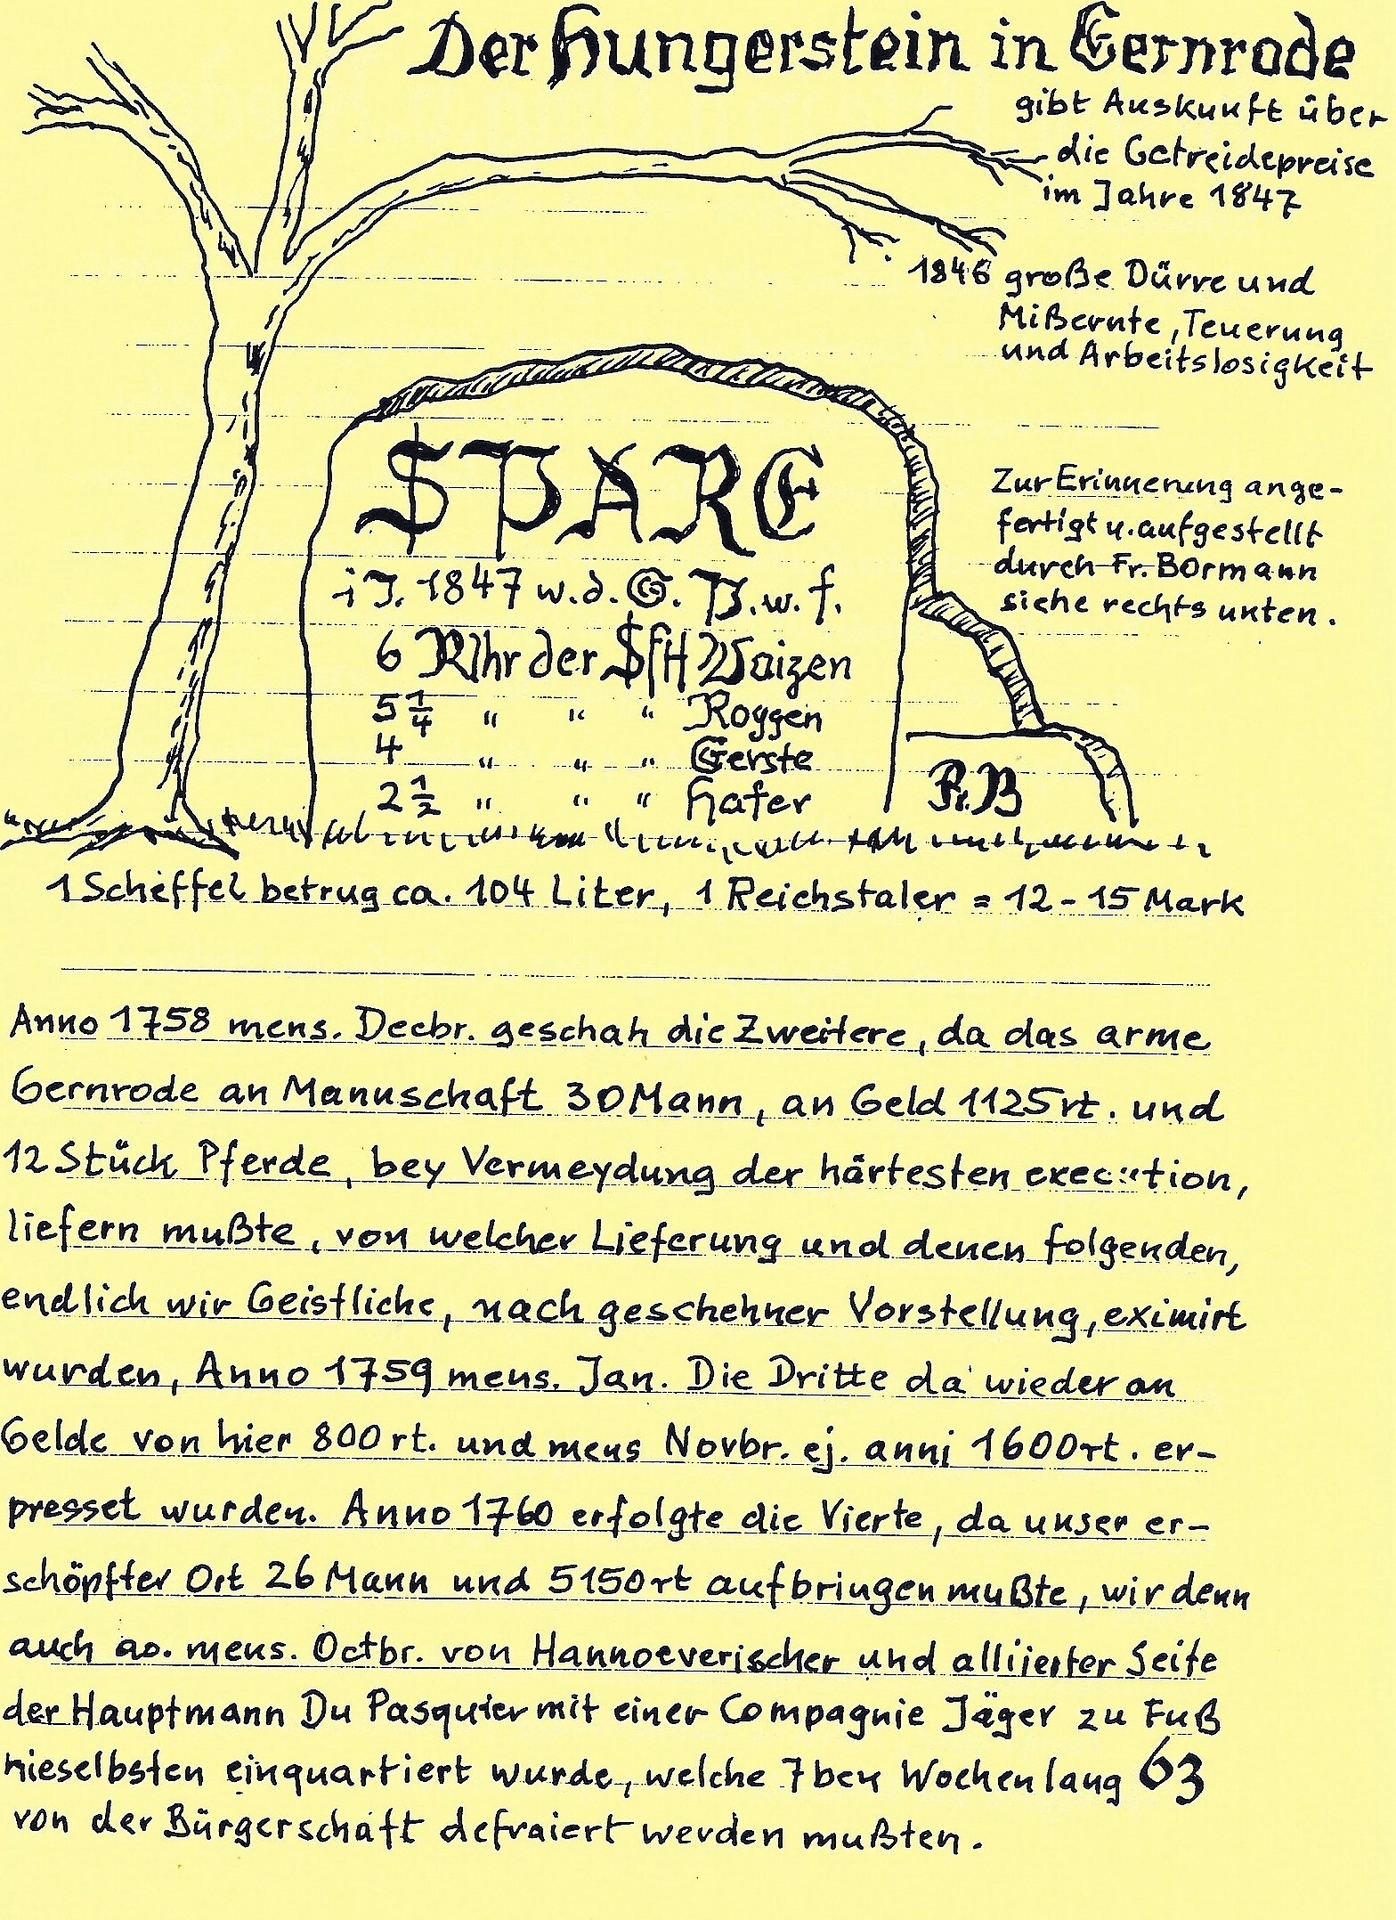 Der Hungerstein in Gernrode
gibt Auskunft über
die Getreidepreise
im Jahre 1847
1846 große Dürre und
Mißernte, Teuerung
und Arbeitslosigkeit
Zur Erinnerung ange-
fertigt u. aufgestellt
durch Fr. Bormann
siehe rechts unten.
SPARE
i J. 1847 w. d. G. P. w. f.
6 Rthr der Sfft Waizen
5 1/4 " " " Roggen
4 " " " Gerste
2 1/2 " " " Hafer
Fr. B
1 Scheffel betrug ca. 104 Liter, 1 Reichstaler = 12 - 15 Mark
Anno 1758 mens. Decbr. geschah die Zweitere, da das arme
Gernrode an Mannschaft 30 Mann, an Geld 1125 rt. und
12 Stück Pferde, bey Vermeydung der härtesten execution,
liefern mußte, von welcher Lieferung und denen folgenden,
endlich wir Geistliche, nach geschehner Vorstellung, eximirt
wurden, Anno 1759 mens. Jan. Die Dritte da wieder an
Gelde von hier 800 rt. und mens Novbr. ej. anni 1600 rt. er-
presset wurden. Anno 1760 erfolgte die Vierte, da unser er-
schöpfter Ort 26 Mann und 5150 rt aufbringen mußte, wir denn
auch ao. mens. Octbr. von Hannoeverischer und alliierter Seite
der Hauptmann Du Pasquier mit einer Compagnie Jäger zu Fuß
hieselbsten einquartiert wurde, welche 7ben Wochen lang
von der Bürgerschaft defraiert werden mußten.
63